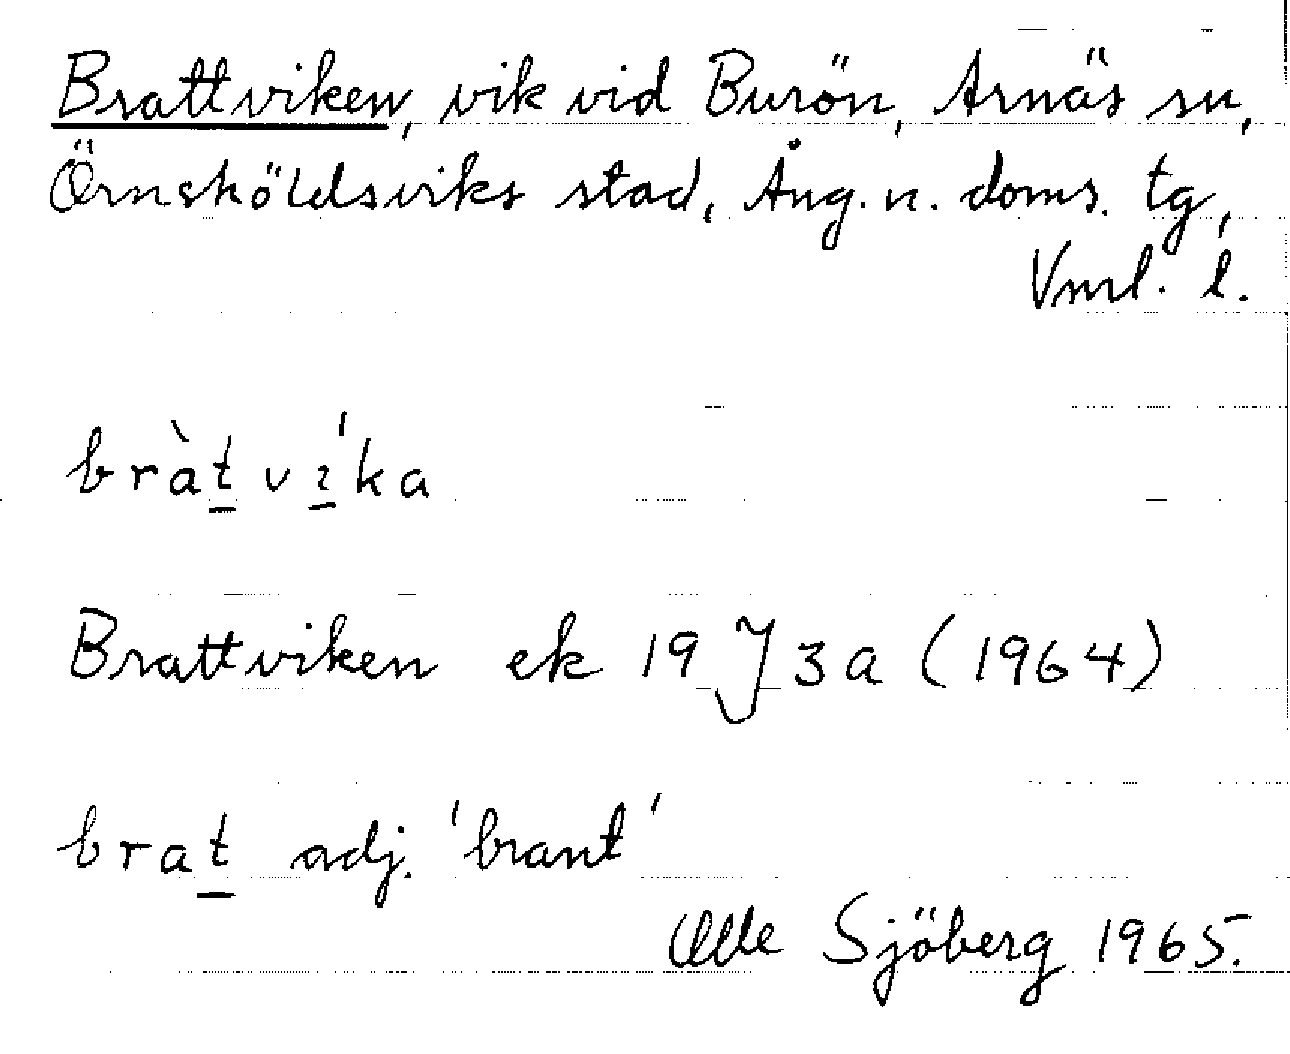 Brattviken, vik vid Burön, Arnäs sn,
Örnsköldsviks stad, Ång. n. doms. tg,
Vnrl. l.
bràt vɩ́ka
Brattviken ek 19 J 3 a (1964)
brat adj. 'brant'
Olle Sjöberg 1965.